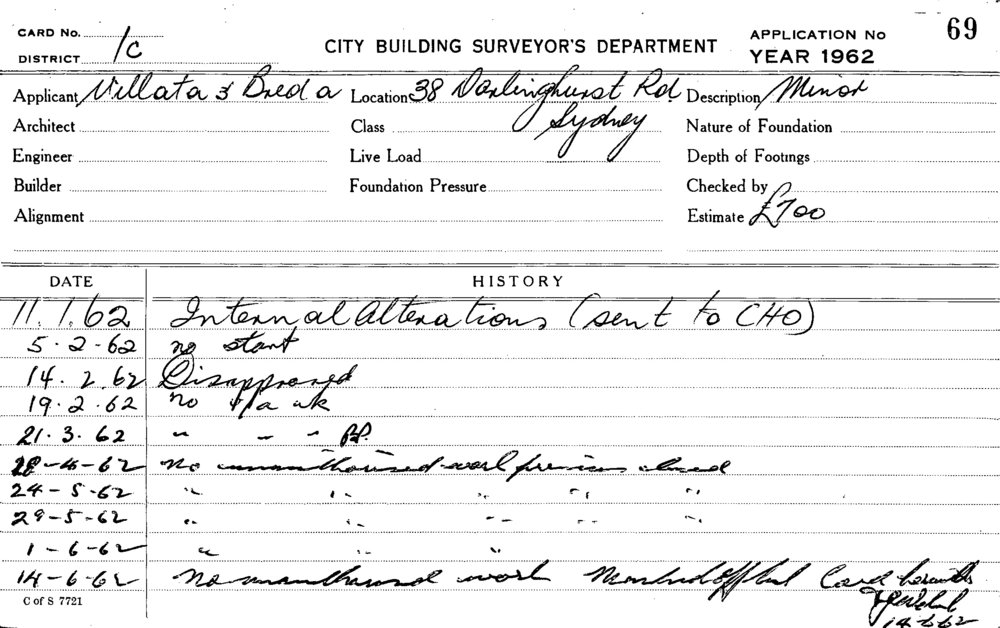 CARD No.
DISTRICT 1c
CITY BUILDING SURVEYOR'S DEPARTMENT
APPLICATION No 69
YEAR 1962
Applicant Villata & Breda Location 38 Darlinghurst Rd. Description Minor
Sydney
Architect Class Nature of Foundation
Engineer Live Load Depth of Footings
Builder Foundation Pressure Checked by
Alignment Estimate £700
DATE HISTORY
11.1.62 Internal Alterations (sent to CHO)
5.2-62 no start
14.2.62 Disapproved
19.2.62 no u/a wk
21.3.62 " " "
18-4-62 No unauthorised work premises closed
24-5-62 " " " " "
29-5-62 " " " " "
1-6-62 " " "
14-6-62 No unauthorised work Marked off Card herewith
14.6.62
C of S 7721